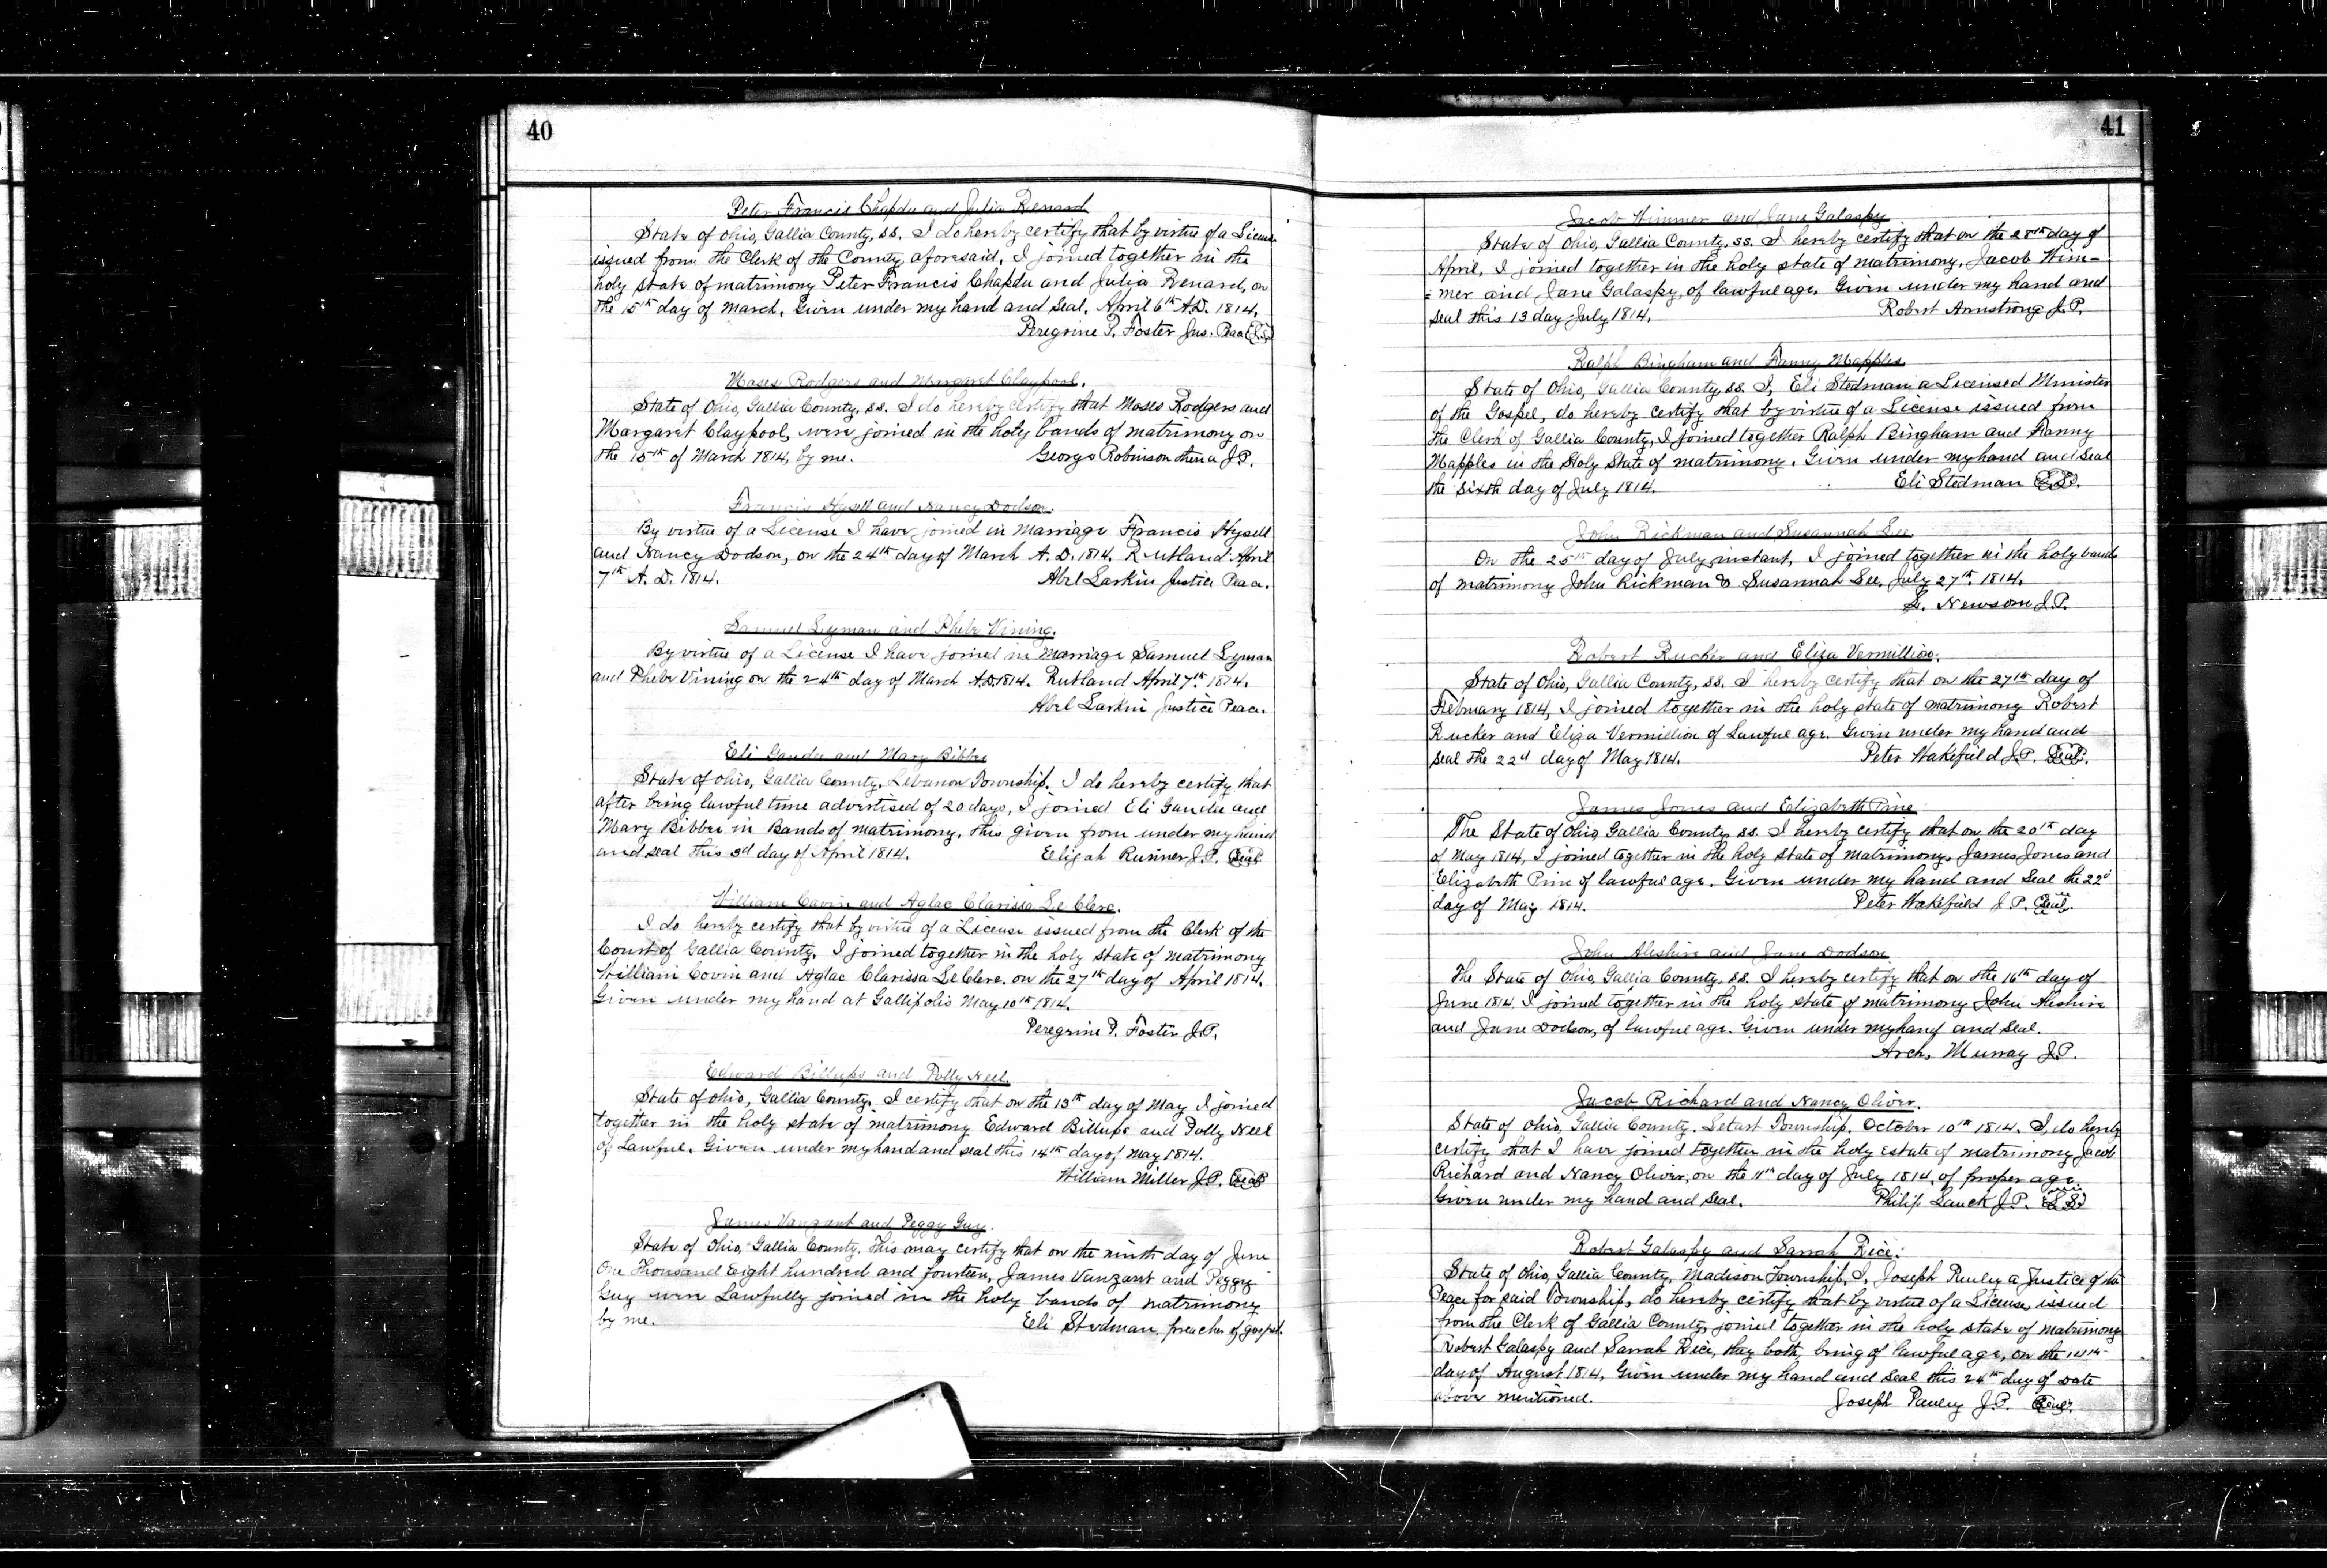 40
Peter Francis Chapdu and Julia Renard
State of Ohio, Gallia County, ss. I do hereby certify that by virtue of a License
issued from the Clerk of the County aforesaid, I joined together in the
holy state of matrimony Peter Francis Chapdu and Julia Renard, on
the 15th day of March. Given under my hand and seal, April 6th A.D. 1814.
Peregrine P. Foster Jus. Peace
Moses Rodgers and Margaret Claypool.
State of Ohio, Gallia County, ss. I do hereby certify that Moses Rodgers and
Margaret Claypool, were joined in the holy bands of matrimony on
the 15th of March 1814, by me. George Robinson then a J.P.
Francis Hysell and Nancy Dodson.
By virtue of a License I have joined in Marriage Francis Hysell
and Nancy Dodson, on the 24th day of March A.D. 1814. Rutland April
7th A.D. 1814. Abel Larkin Justice Peace.
Samuel Lyman and Phebe Vining.
By virtue of a License I have joined in marriage Samuel Lyman
and Phebe Vining on the 24th day of March A.D. 1814. Rutland April 7th. 1814.
Abel Larkin Justice Peace.
Eli Gandee and Mary Bibbee
State of Ohio, Gallia County, Lebanon Township. I do hereby certify that
after being lawful time advertised of 20 days, I joined Eli Gandee and
Mary Bibbee in Bands of matrimony, this given from under my hand
and seal this 3d day of April 1814. Elijah Runner J.P. Seal
William Covin and Aglae Clarissa Le Clerc.
I do hereby certify that by virtue of a License issued from the Clerk of the
Court of Gallia County, I joined together in the holy state of matrimony
William Covin and Aglae Clarissa Le Clerc. on the 27th day of April 1814.
Given under my hand at Gallipolis May 10th 1814.
Peregrine P. Foster J.P.
Edward Billups and Polly Neel.
State of Ohio, Gallia County. I certify that on the 13th day of May I joined
together in the holy state of matrimony Edward Billups and Polly Neel
of Lawful. Given under my hand and seal this 14th day of May 1814.
William Miller J.P. Seal
James Vanzant and Peggy Guy.
State of Ohio, Gallia County. This may certify that on the ninth day of June
One Thousand Eight hundred and fourteen, James Vanzant and Peggy
Guy were Lawfully joined in the holy bands of matrimony
by me. Eli Stedman, preacher of gospel.
41
Jacob Wimmer and Jane Galaspy
State of Ohio, Gallia County, ss. I hereby certify that on the 28th day of
April, I joined together in the holy state of matrimony, Jacob Wim-
=mer and Jane Galaspy, of lawful age. Given under my hand and
seal this 13 day July 1814. Robert Armstrong J.P.
Ralph Bingham and Fanny Mapples
State of Ohio, Gallia County, ss. I, Eli Stedman a Licensed Minister
of the Gospel, do hereby certify that by virtue of a License issued from
the Clerk of Gallia County, I joined together Ralph Bingham and Fanny
Mapples in the Holy State of matrimony. Given under my hand and seal
the sixth day of July 1814. Eli Stedman
John Rickman and Susannah Lee
On the 25th day of July instant, I joined together in the holy bands
of matrimony John Rickman & Susannah Lee, July 27th. 1814.
S. Newsom J.P.
Robert Rucker and Eliza Vermillion.
State of Ohio, Gallia County, ss. I hereby certify that on the 27th day of
February 1814, I joined together in the holy state of matrimony Robert
Rucker and Eliza Vermillion of Lawful age. Given under my hand and
seal the 22d day of May 1814. Peter Wakefield J.P. Seal.
James Jones and Elizabeth Pine
The State of Ohio Gallia County, ss. I hereby certify that on the 20th day
of May 1814, I joined together in the holy state of matrimony James Jones and
Elizabeth Pine of lawful age. Given under my hand and Seal the 22d
day of May 1814. Peter Wakefield J.P. Seal.
John Aleshire and Jane Dodson
The State of Ohio, Gallia County. ss. I hereby certify that on the 16th day of
June 1814, I joined together in the holy state of matrimony John Aleshire
and Jane Dodson, of lawful age. Given under my hand and seal.
Arch, Murray J.P.
Jacob Richard and Nancy Oliver.
State of Ohio, Gallia County. Letart Township, October 10th 1814. I, do hereby
certify that I have joined together in the holy estate of matrimony Jacob
Richard and Nancy Oliver, on the 11th day of July 1814, of proper age.
Given under my hand and seal. Philip Lauck J.P. L.S.
Robert Galaspy and Sarrah Rice.
State of Ohio, Gallia County, Madison Township, I, Joseph Pauley a Justice of the
Peace for said Township, do hereby certify that by virtue of a License, issued
from the Clerk of Gallia County, joined together in the holy state of matrimony
Robert Galaspy and Sarrah Rice, they both, being of lawful age, on the 14th
day of August 1814, Given under my hand and seal this 24th day of date
above mentioned. Joseph Pauley J.P. Seal.